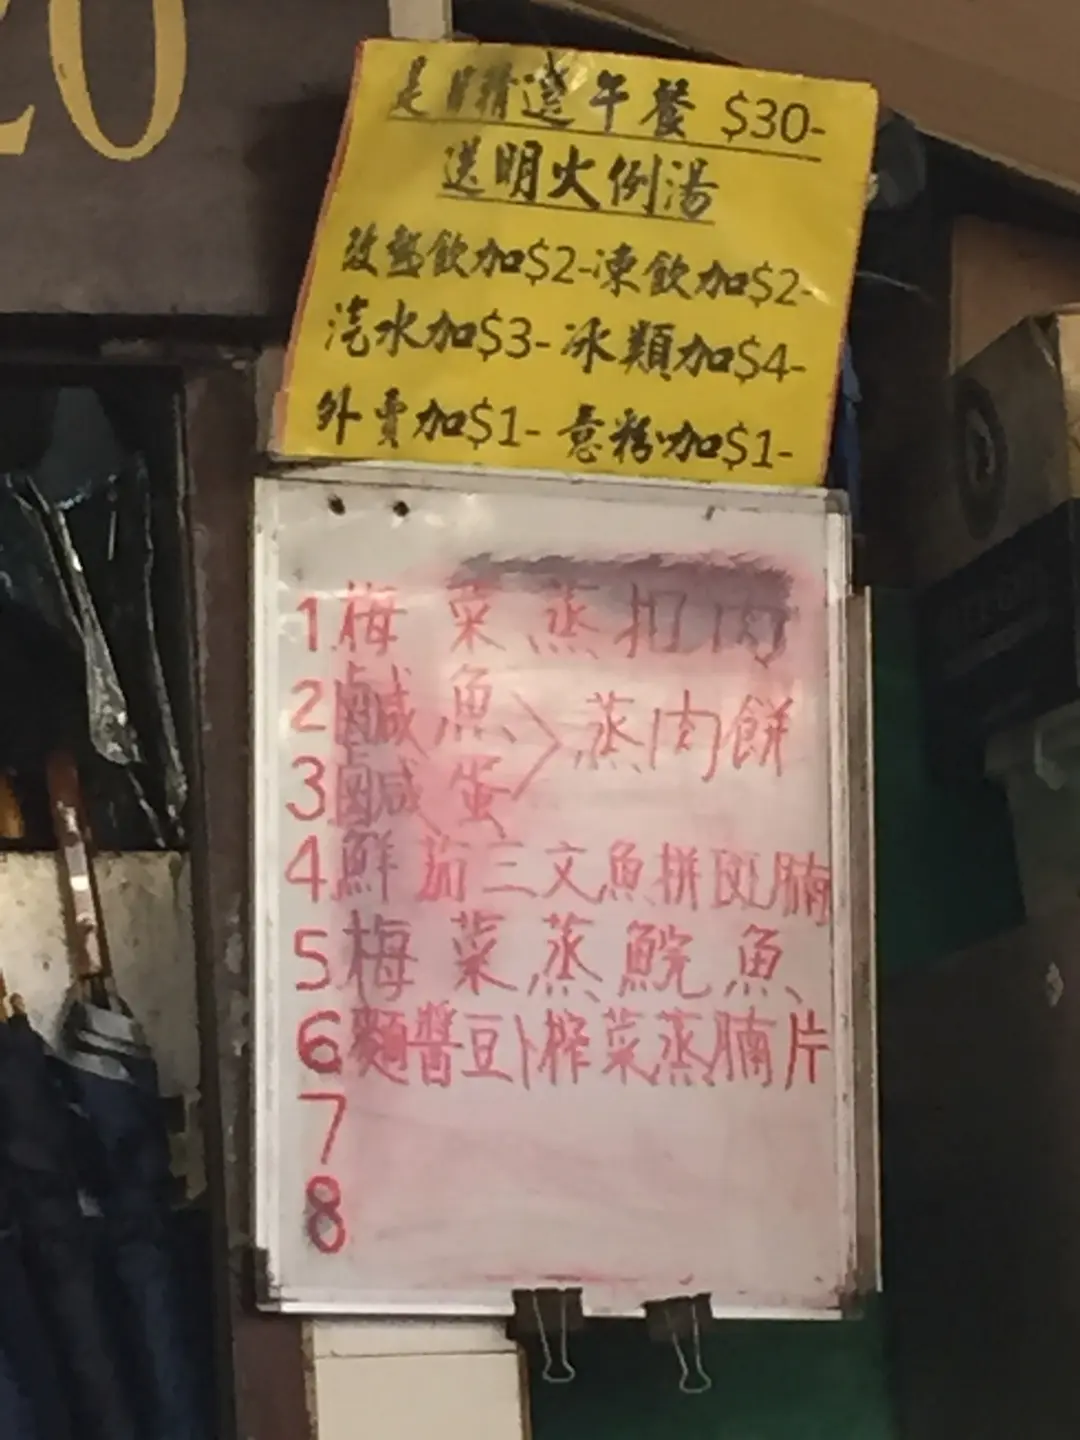 20
是日精選午餐 $30-
送明火例湯
改熱飲加$2-凍飲加$2-
汽水加$3- 冰類加$4-
外賣加$1- 意粉加$1-
1 梅菜蒸扣肉
2 鹹魚 > 蒸肉餅
3 鹹蛋
4 鮮茄三文魚拼斑腩
5 梅菜蒸鯇魚
6 麵醬豆卜榨菜蒸腩片
7
8